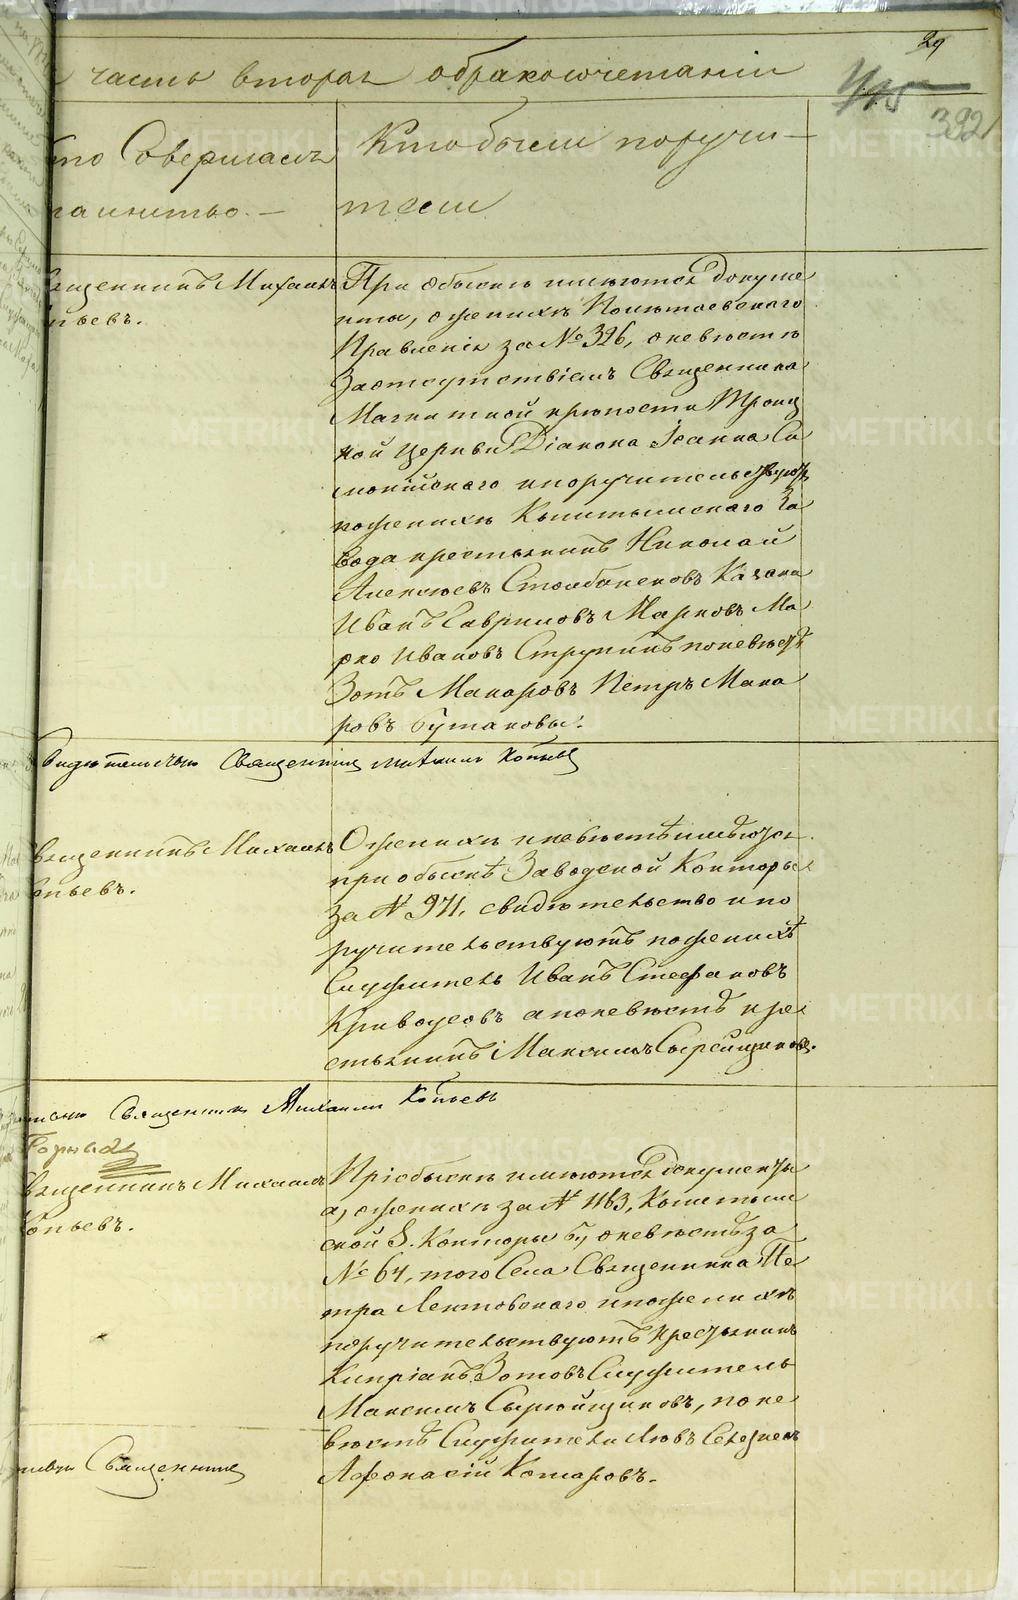 29
часть вторая обракосочетаніи
415
392
то Совершалъ
таинство. —
Кто были поручи-
тели
вященникъ Михаилъ
пьевъ.
При обыске имеются докуме
нты, оженихе Полетаевскаго
Правленія за № 326, оневесте
За отсутствіемъ Священника
Магнитной крепости Троиц
кой церкви Діакона Іоанна Си
монійскаго ипоручительствуютъ
поженихе Кыштымскаго За
вода крестьянинъ Николай
Алексеевъ Столбиковъ Казаки
Иванъ Гавриловъ Марковъ Ма
рко Ивановъ Струнинъ поневестѣ
Зотъ Макаровъ Петръ Мака
ровъ Бутаковы.
видетельствую Священникъ Михаилъ Копьевъ
вященникъ Михаилъ
опьевъ.
Оженихе иневестѣ имѣются
при обыскѣ Заводской Конторы
За № 971, свидетельство и по
ручительствуютъ поженихѣ
Служитель Иванъ Стефановъ
Криводеовъ а поневестѣ кре
стьянинъ Максимъ Сырейщиковъ.
Священникъ Михаилъ Копьевъ
вященникъ Михаилъ
опьевъ.
При обыске имеются документы
а, оженихе за № 1163, Кыштым
ской З. Конторы б., оневестѣ за
№ 64, того Села Священника Пе
тра Лентовскаго ипоженихе
поручительствуютъ крестьянинъ
Кипріанъ Зотовъ Служитель
Максимъ Сырейщиковъ, поне
вестѣ Служители Левъ Селезневъ
Афонасій Комаровъ.
Священникъ